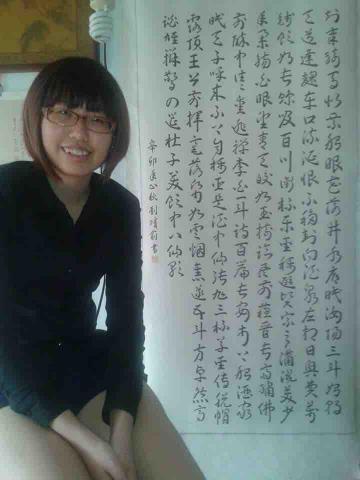 知章騎馬似乘船眼花落井水底眠汝陽三斗始朝
天道逢麯車口流涎恨不移封向酒泉左相日興費萬
錢飲如長鯨吸百川銜杯樂聖稱避賢宗之瀟洒美少
年舉觴白眼望青天皎如玉樹臨風前蘇晉長齋繡佛
前醉中往往愛逃禪李白一斗詩百篇長安市上酒家
眠天子呼來不上船自稱臣是酒中仙張旭三杯草聖傳脫帽
露頂王公前揮毫落紙如雲煙焦遂五斗方卓然高
談雄辯驚四筵杜子美飲中八仙歌
辛卯秋書